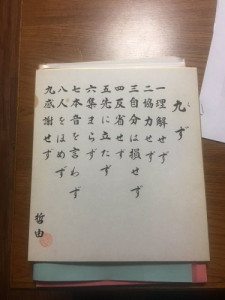 九ず
一理解せず
二協力せず
三自分は損せず
四反省せず
五先に立たず
六集まらず
七本音を言わず
八人をほめず
九感謝せず
哲由